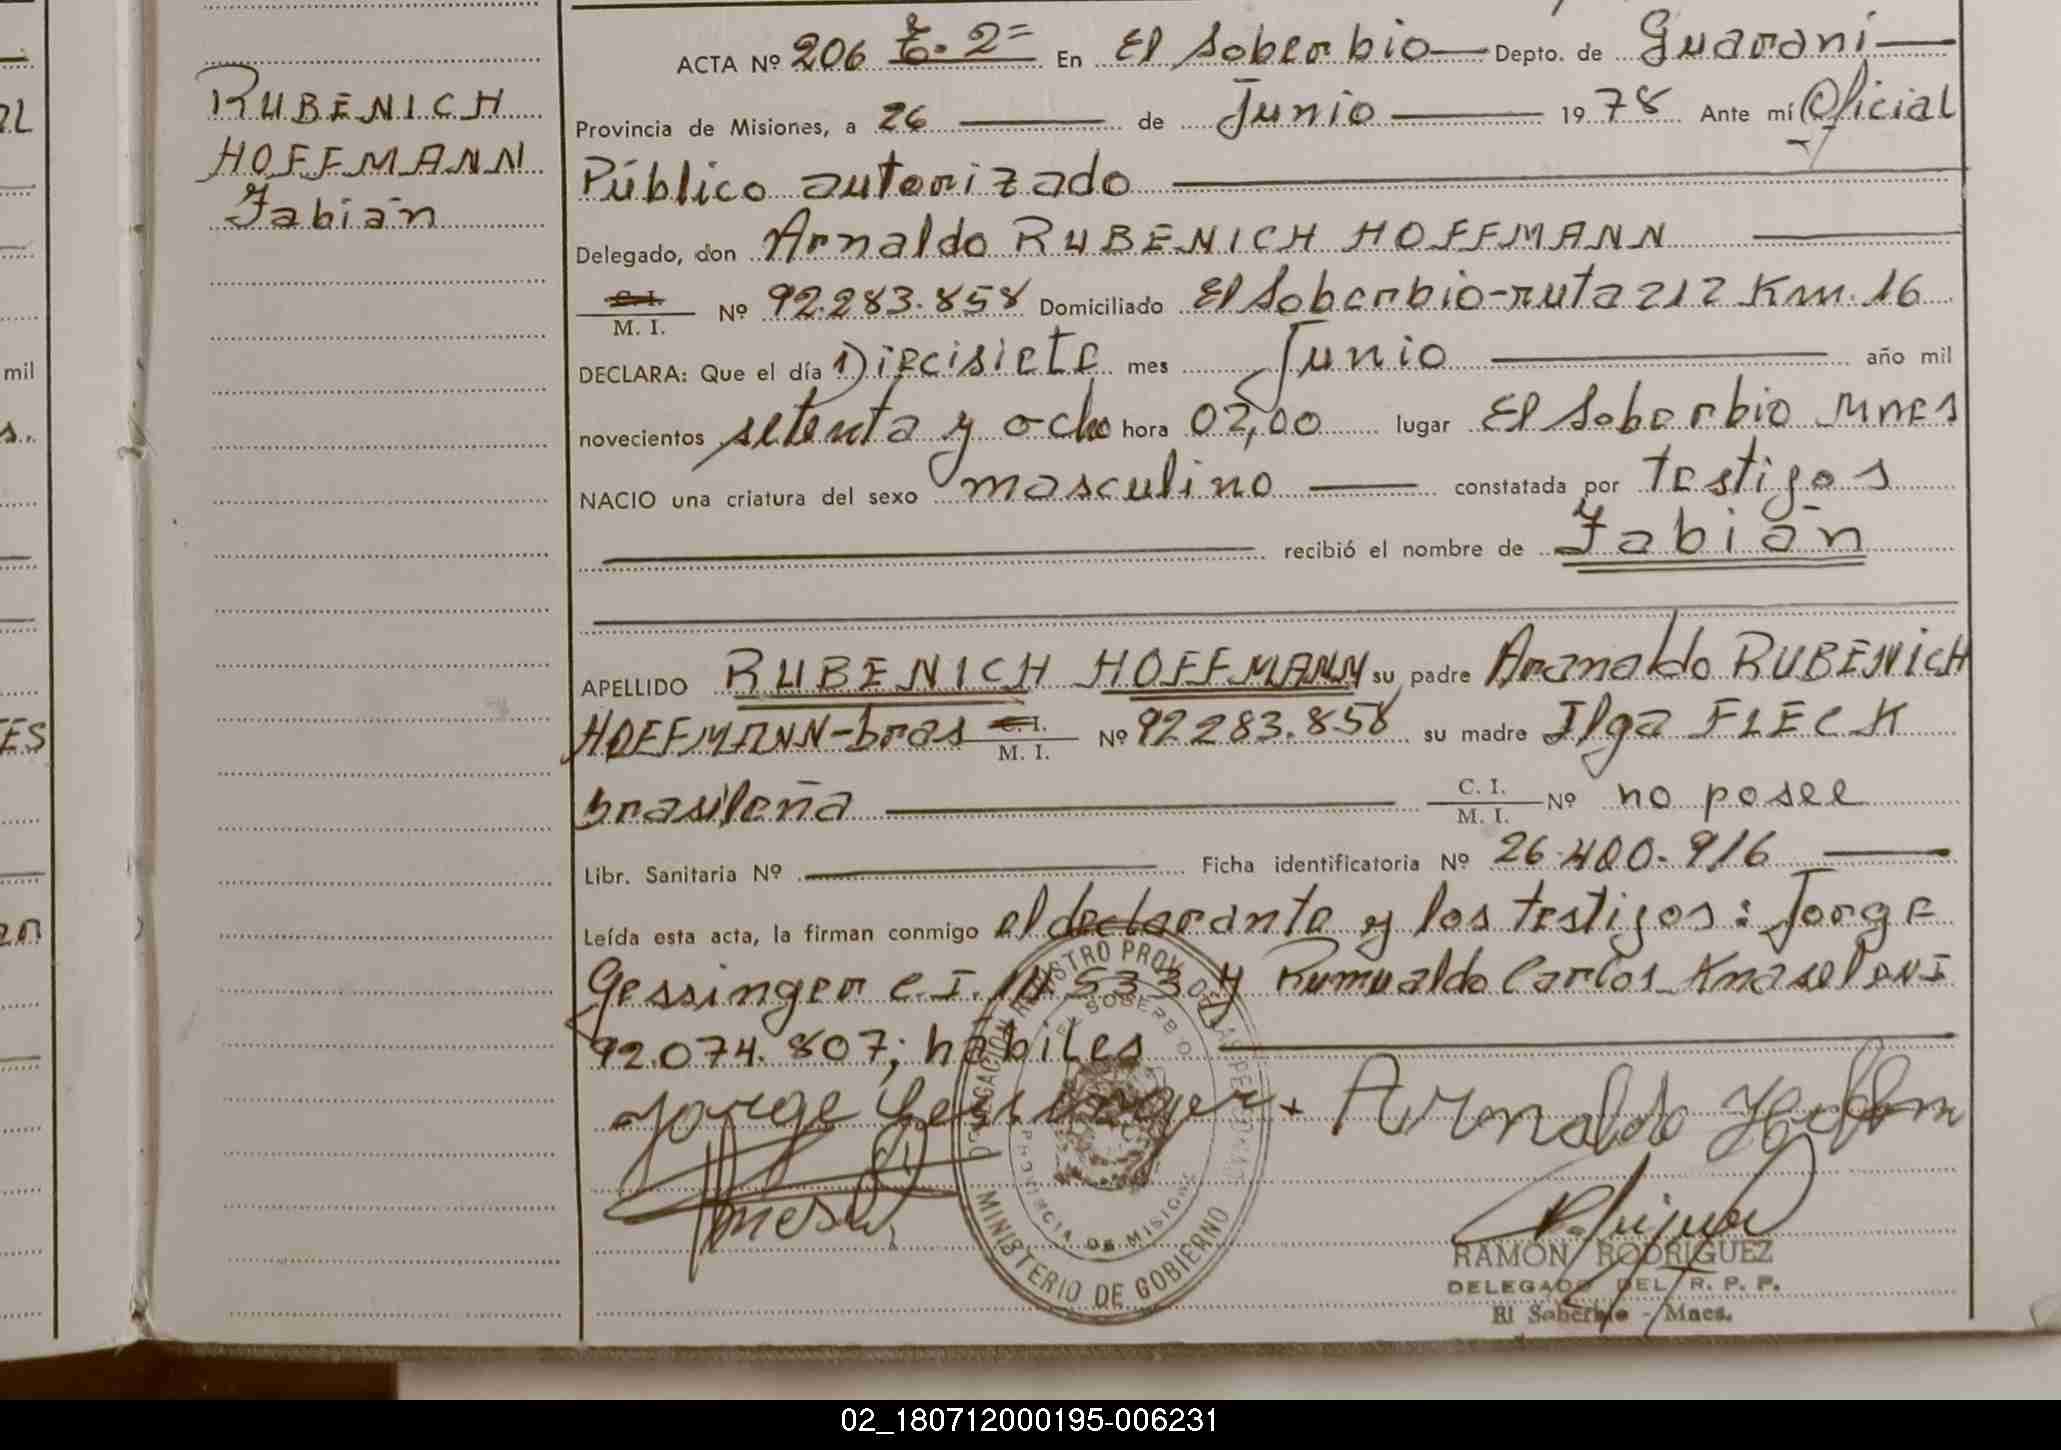 RUBENICH
HOFFMANN
Fabián
ACTA Nº 206 T. 2= En El Soberbio Depto. de Guaraní
Provincia de Misiones, a 26 de Junio 1978 Ante mí Oficial
Público autorizado
Delegado, don Arnaldo RUBENICH HOFFMANN
C. I. M. I. Nº 92.283.858 Domiciliado El Soberbio-ruta 212 Km. 16
DECLARA: Que el día Diecisiete mes Junio año mil
novecientos setenta y ocho hora 02,00 lugar El Soberbio Mnes
NACIO una criatura del sexo masculino constatada por testigos
recibió el nombre de Fabián
APELLIDO RUBENICH HOFFMANN su padre Arnaldo RUBENICH
HOFFMANN-bras C. I. M. I. Nº 92283.858 su madre Ilga FLECK
brasileña C. I. M. I. Nº no posee
Libr. Sanitaria Nº Ficha identificatoria Nº 26.400.916
Leída esta acta, la firman conmigo el declarante y los testigos: Jorge
Gessinger C.I. 14.533 y Rumualdo Carlos
92.074.807; hábiles
Jorge Gessinger + Arnaldo
EL SOBERBIO
PROVINCIA DE MISIONES
MINISTERIO DE GOBIERNO
RAMON RODRIGUEZ
DELEGADO DEL R. P. P.
El Soberbio - Mnes.
mil
ES
02_180712000195-006231